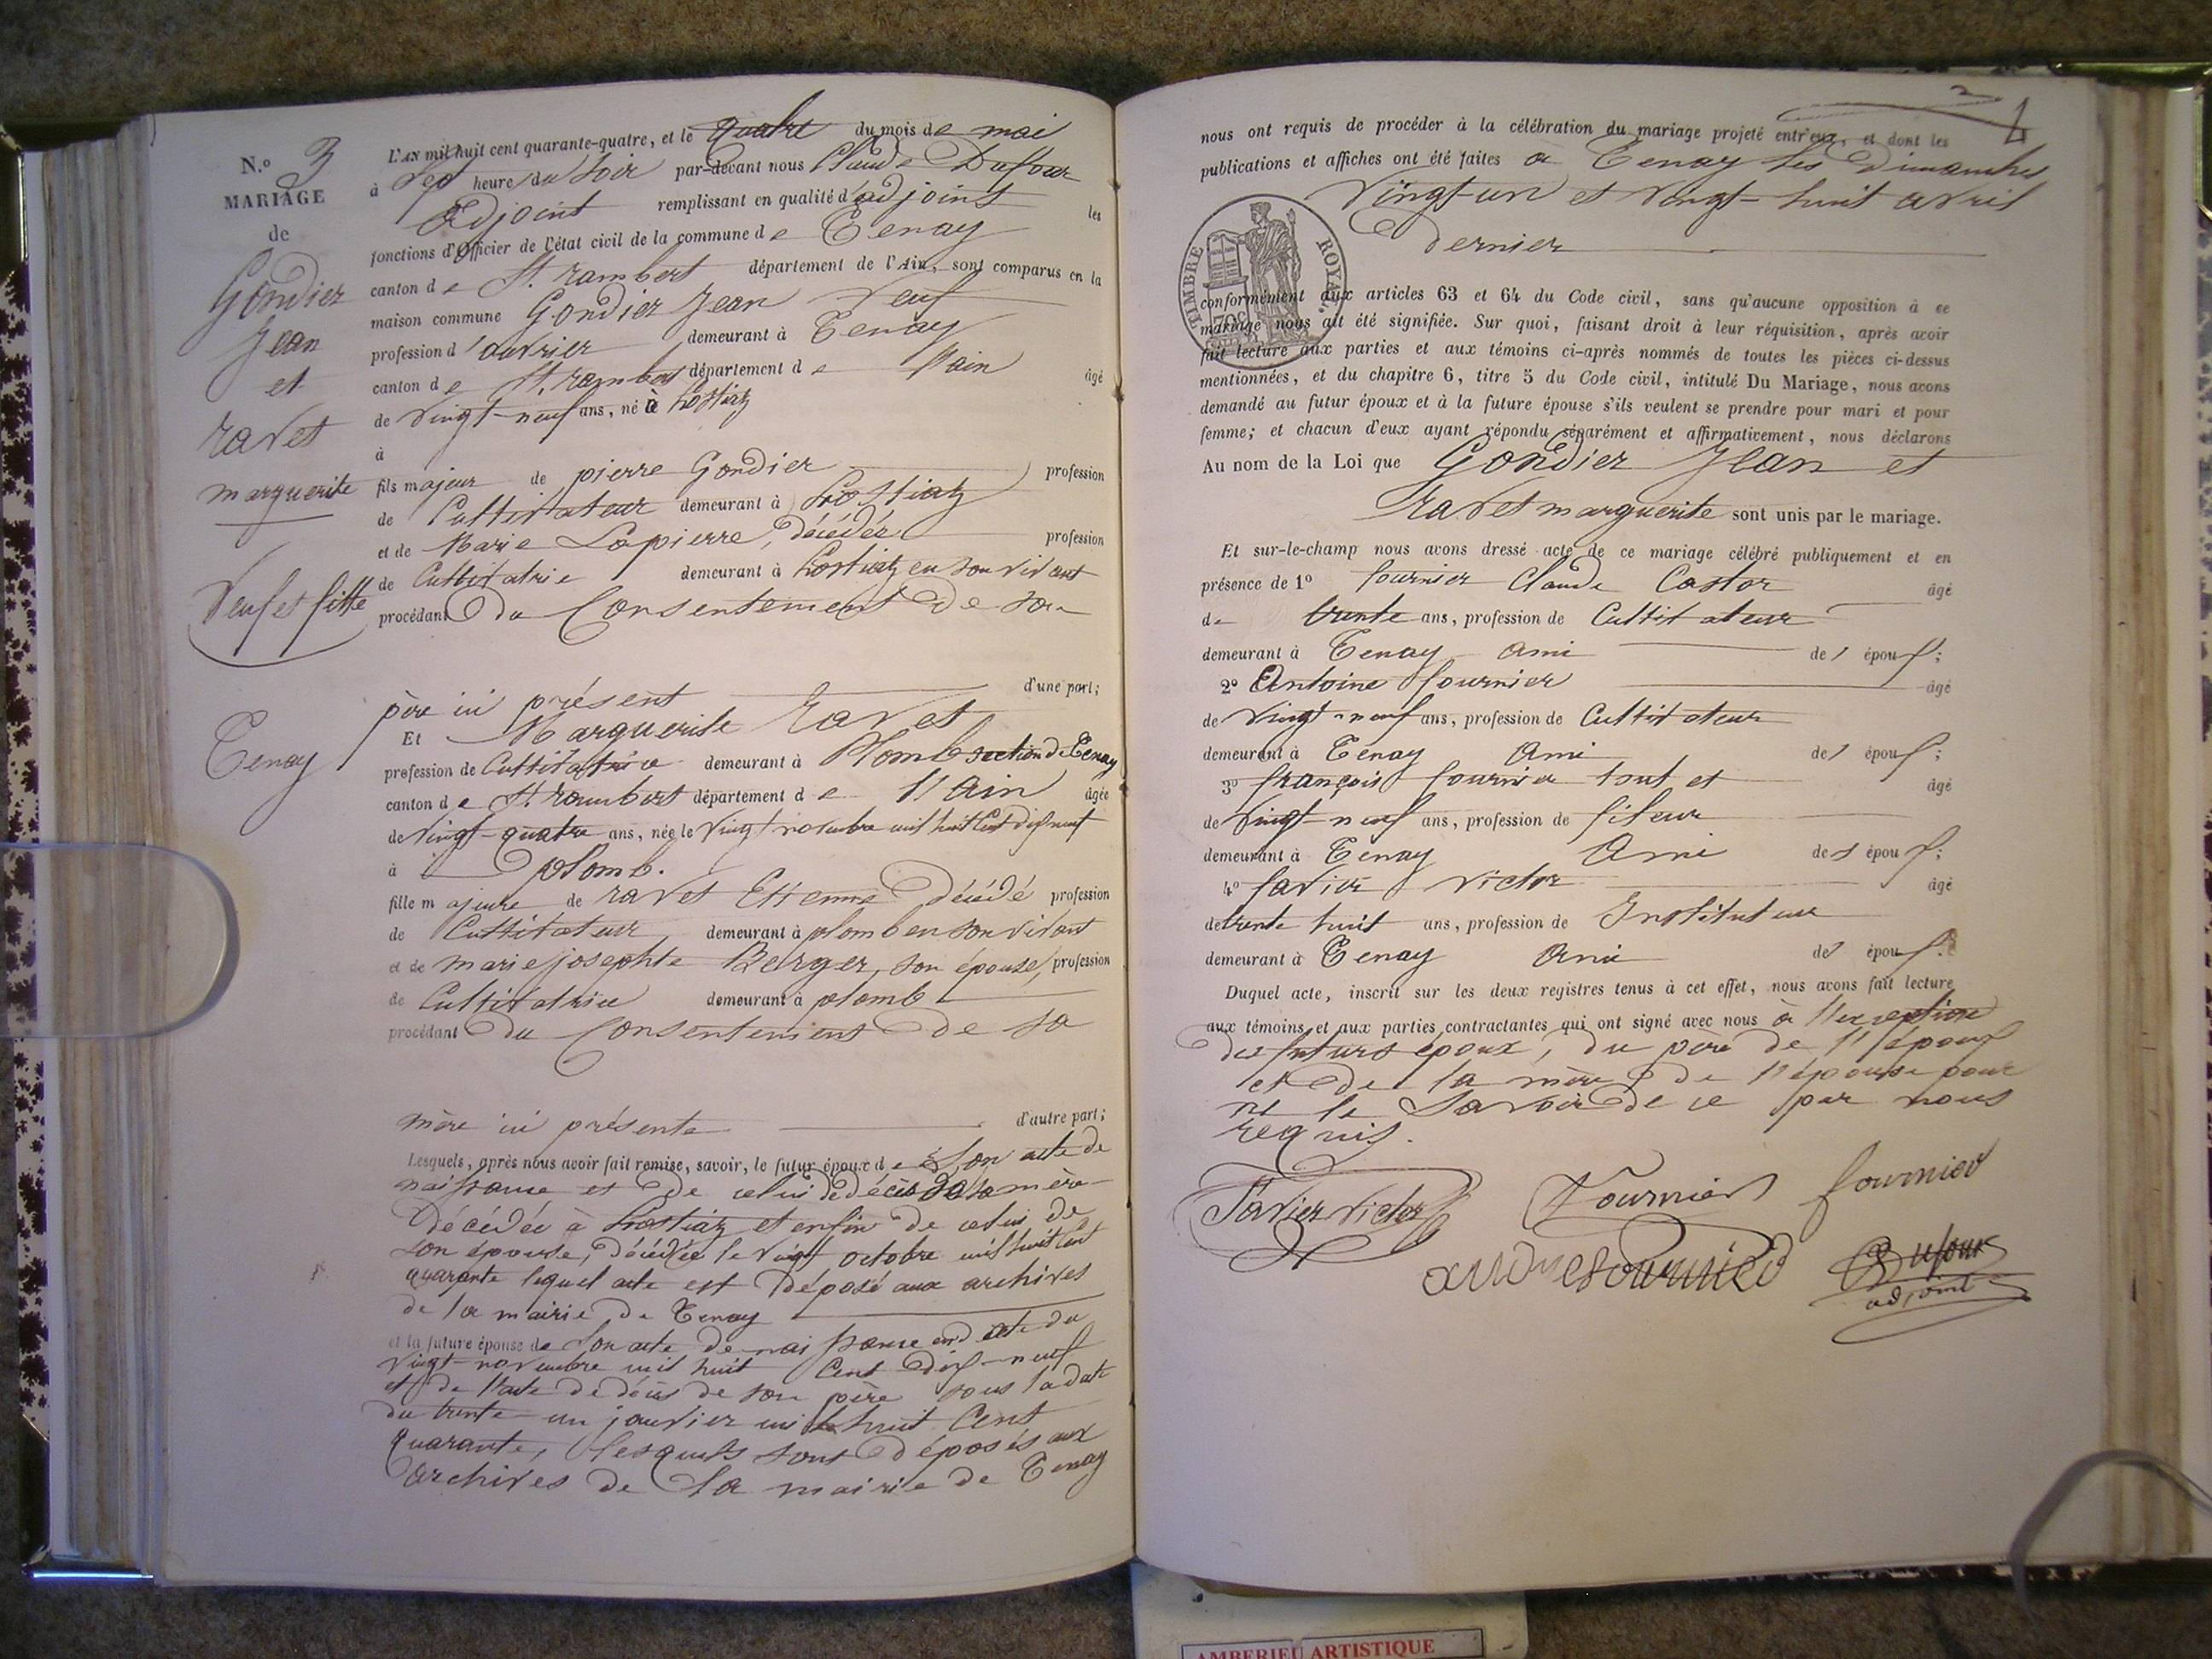 N.o 3
MARIAGE
de
Gondier
Jean
et
ravet
marguerite
Veuf et fille
Tenay
L'AN mil huit cent quarante-quatre, et le quatre du mois de mai
à sept heure du soir par-devant nous Claude Dufour
Adjoint remplissant en qualité d'adjoint les
fonctions d'Officier de l'état civil de la commune de Tenay
canton de St. rambert département de l'Ain, sont comparus en la
maison commune Gondier Jean Veuf
profession d'ouvrier demeurant à Tenay
canton de St. rambert département de l'ain âgé
de vingt-neuf ans, né à hostiaz
à
fils majeur de pierre Gondier profession
de Cultivateur demeurant à hostiaz
et de Marie Lapierre, décédée profession
de Cultivatrie demeurant à hostiaz en son vivant
procédant du Consentement de son
père ici présent d'une part;
Et Marguerite ravet
profession de Cultivatrice demeurant à Plomb section de Tenay
canton de St. rambert département de l'Ain âgée
de vingt-quatre ans, née le vingt novembre mil huit Cent dix neuf
à plomb.
fille majeure de ravet Etienne décédé profession
de Cultivateur demeurant à plomb en son vivant
et de marie josephte Berger, son épouse, profession
de Cultivatrice demeurant à plomb
procédant du Consentement de sa
mère ici présente d'autre part;
Lesquels, après nous avoir fait remise, savoir, le futur époux de son acte de
naissance et de celui de décès de sa mère
décédée à hostiaz et enfin de celui de
son épouse, décédée le vingt octobre mil huit Cent
quarante lequel acte est déposé aux archives
de la mairie de Tenay
et la future épouse de son acte de naissance en date du
vingt-novembre mil huit Cent dix-neuf
et de l'acte de décès de son père sous la date
du trente-un janvier mil huit Cent
quarante, lesquels sont déposés aux
archives de la mairie de Tenay
2
nous ont requis de procéder à la célébration du mariage projeté entr'eux, et dont les
publications et affiches ont été faites à Tenay les Dimanches
vingt-un et vingt-huit avril
dernier
TIMBRE ROYAL.
70c
conformément aux articles 63 et 64 du Code civil, sans qu'aucune opposition à ce
mariage nous ait été signifiée. Sur quoi, faisant droit à leur réquisition, après avoir
fait lecture aux parties et aux témoins ci-après nommés de toutes les pièces ci-dessus
mentionnées, et du chapitre 6, titre 5 du Code civil, intitulé Du Mariage, nous avons
demandé au futur époux et à la future épouse s'ils veulent se prendre pour mari et pour
femme; et chacun d'eux ayant répondu séparément et affirmativement, nous déclarons
Au nom de la Loi que Gondier Jean et
ravet marguerite sont unis par le mariage.
Et sur-le-champ nous avons dressé acte de ce mariage célébré publiquement et en
présence de 1o fournier Claude Castor âgé
de trente ans, profession de Cultivateur
demeurant à Tenay Ami de l'époux;
2o Antoine fournier âgé
de vingt-neuf ans, profession de Cultivateur
demeurant à Tenay Ami de l'époux;
3o françois fournier âgé
de vingt-neuf ans, profession de fileur
demeurant à Tenay Ami de l'époux;
4o Savier victor âgé
de trente huit ans, profession de Instituteur
demeurant à Tenay Ami de l'époux.
Duquel acte, inscrit sur les deux registres tenus à cet effet, nous avons fait lecture
aux témoins et aux parties contractantes qui ont signé avec nous à l'exception
des futurs époux, du père de l'époux
et de la mère de l'épouse pour
ne le savoir de ce par nous
requis.
Savier Victor Fournier fournier
fournier Dufour
adjoint
AMBERIEU ARTISTIQUE